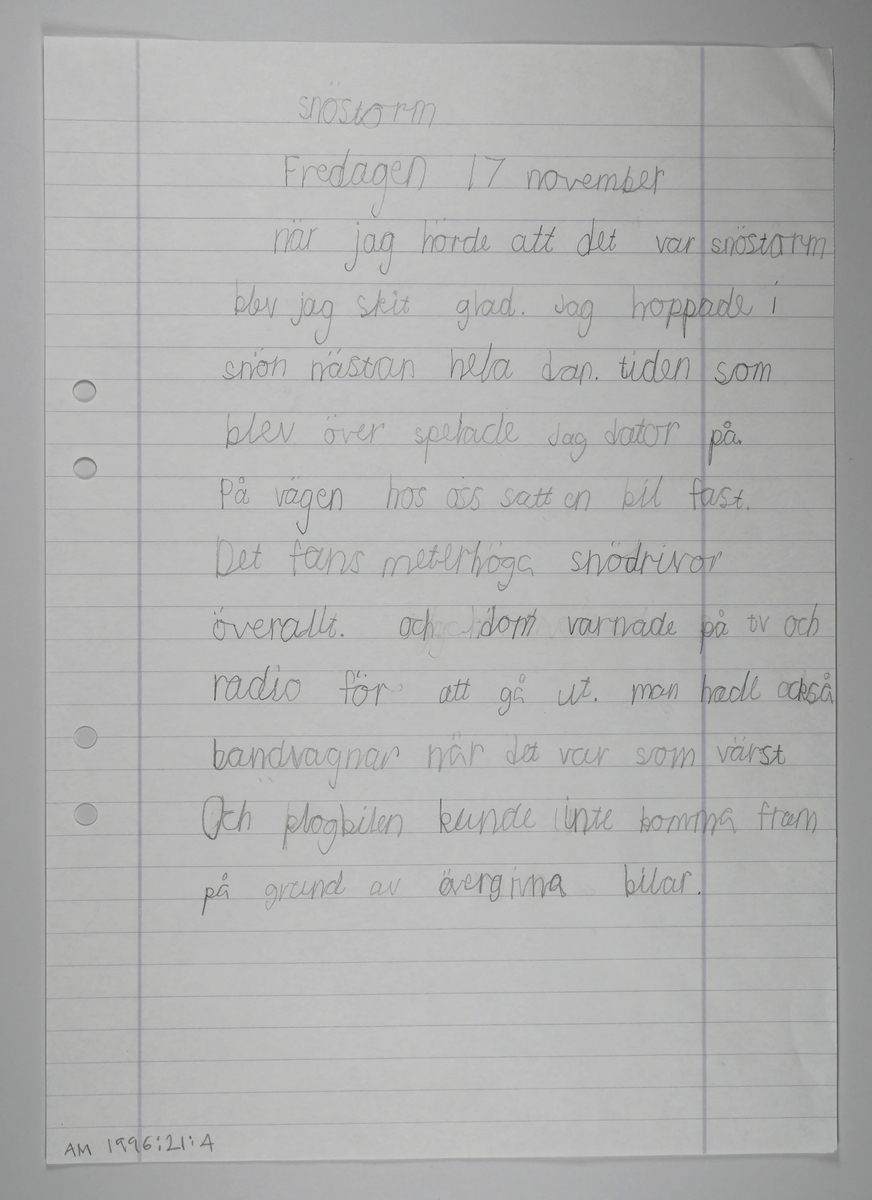 snöstorm
Fredagen 17 november
när jag hörde att det var snöstorm
blev jag skit glad. Jag hoppade i
snön nästan hela dan. tiden som
blev över spelade jag dator på.
På vägen hos oss satt en bil fast.
Det fans meterhöga snödrivor
överallt. och dom varnade på tv och
radio för att gå ut. man hade också
bandvagnar när det var som värst
Och plogbilen kunde inte komma fram
på grund av övergivna bilar.
AM 1996:21:4